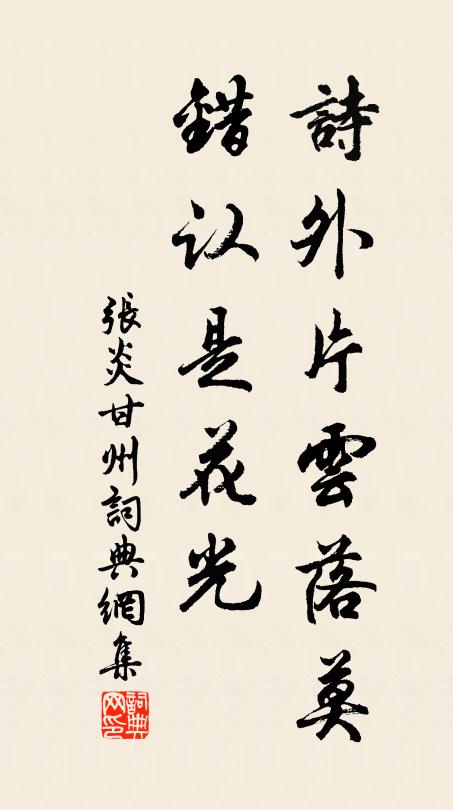 詩外片雲落莫
错认是花光
張炎甘州詞典網集
詞典网印